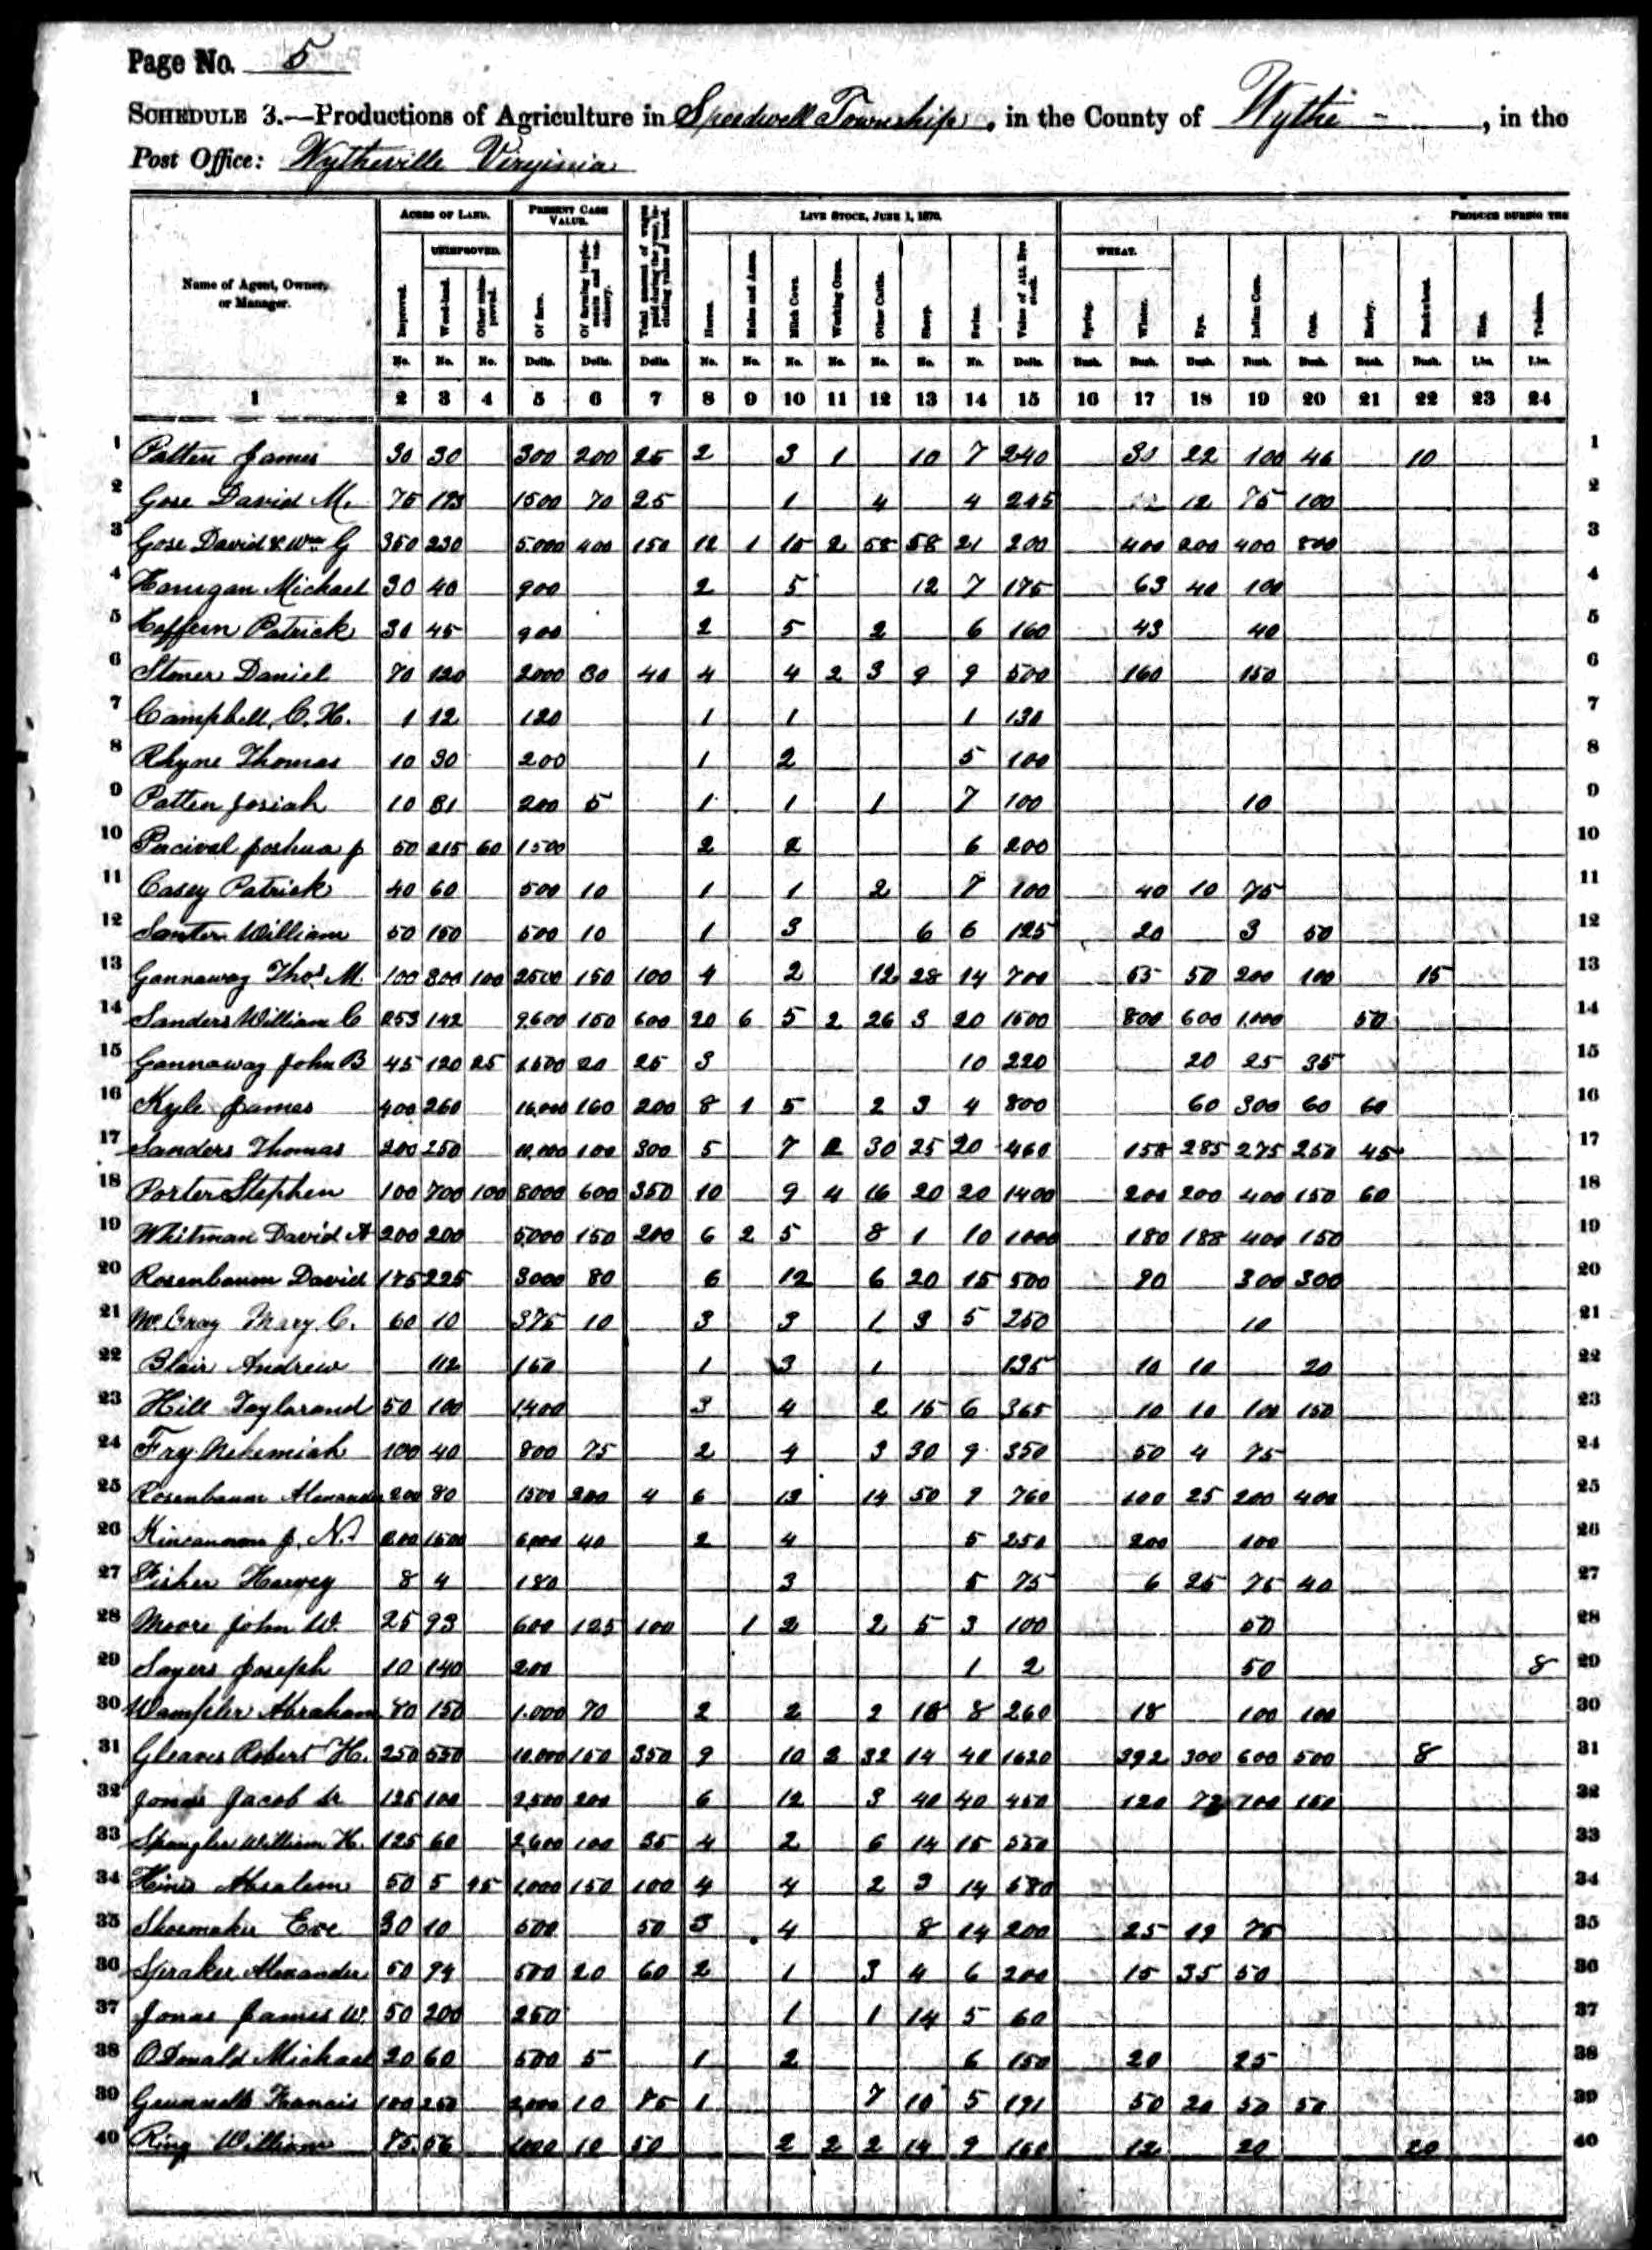 Page No. 5
SCHEDULE 3.—Productions of Agriculture in Speedwell Township, in the County of Wythe, in the
Post Office: Wytheville Virginia
Name of Agent, Owner, or Manager. ACRES OF LAND. PRESENT CASH VALUE. LIVE STOCK, JUNE 1, 1870. PRODUCE DURING THE
UNIMPROVED. WHEAT.
Improved. Wood-land. Other unimproved. Of farm. Of farming implements and machinery. Total amount of wages paid during the year, including value of board. Horses. Mules and Asses. Milch Cows. Working Oxen. Other Cattle. Sheep. Swine. Value of all live stock. Spring. Winter. Rye. Indian Corn. Oats. Barley. Buckwheat. Rice. Tobacco.
No. No. No. Dolls. Dolls. Dolls. No. No. No. No. No. No. No. Dolls. Bush. Bush. Bush. Bush. Bush. Bush. Bush. Lbs. Lbs.
1 2 3 4 5 6 7 8 9 10 11 12 13 14 15 16 17 18 19 20 21 22 23 24
1 Patten James 30 30 300 200 25 2 3 1 10 7 240 22 100 46 10 1
2 Gose David M. 75 173 1500 70 25 1 4 4 245 12 75 100 2
3 Gose David & Wm G 350 230 5.000 400 150 12 1 15 2 58 58 21 200 400 200 400 800 3
4 Michael 30 40 900 2 5 12 7 175 63 40 100 4
5 Patrick 30 45 900 2 5 2 6 160 43 40 5
6 Stoner Daniel 70 120 2000 30 40 4 4 2 3 9 9 500 160 150 6
7 Campbell, C. H. 1 12 120 1 1 1 130 7
8 Rhyne Thomas 10 30 200 1 2 5 100 8
9 Patten Josiah 10 31 200 5 1 1 1 7 100 10 9
10 Percival Joshua J 50 215 60 1500 2 2 6 200 10
11 Casey Patrick 40 60 500 10 1 1 2 7 100 40 10 75 11
12 William 50 150 500 10 1 3 6 6 125 20 3 50 12
13 Gannaway Thos. M. 100 300 100 2500 150 100 4 2 12 28 14 700 55 50 200 100 15 13
14 Sanders William C 253 142 9600 150 600 20 6 5 2 26 3 20 1500 800 600 1.000 50 14
15 Gannaway John B 45 120 25 1.500 20 25 3 10 220 20 25 35 15
16 Kyle James 400 260 16,000 160 200 8 1 5 2 3 4 800 60 300 60 60 16
17 Sanders Thomas 200 250 10,000 100 300 5 7 2 30 25 20 460 158 285 275 250 45 17
18 Porter Stephen 100 700 100 8000 600 350 10 9 4 16 20 20 1400 200 200 400 150 60 18
19 Whitman David A 200 200 5000 150 200 6 2 5 8 1 10 1000 180 188 400 150 19
20 Rosenbaum David 175 225 3000 80 6 12 6 20 15 500 90 300 300 20
21 Mary C. 60 10 375 10 3 3 1 3 5 250 10 21
22 Blair Andrew 112 150 1 3 1 135 10 10 20 22
23 Hill 50 100 1400 3 4 2 15 6 365 10 10 100 150 23
24 Fry Nehemiah 100 40 800 75 2 4 3 30 9 350 50 4 75 24
25 Rosenbaum Alexander 200 80 1500 200 4 6 13 14 50 9 760 100 25 200 400 25
26 Kincannon J. N. 200 1500 6,000 40 2 4 5 250 200 100 26
27 Fisher Harvey 8 4 180 3 5 75 6 25 75 40 27
28 Moore John W. 25 93 600 125 100 1 2 2 5 3 100 50 28
29 Sayers Joseph 10 140 200 1 2 50 8 29
30 Wampler Abraham 80 150 1.000 70 2 2 2 18 8 260 18 100 100 30
31 Gleaves Robert H. 250 550 10.000 150 350 9 10 2 32 14 40 1620 392 300 600 500 8 31
32 Jonas Jacob Sr 125 100 2,500 200 6 12 3 40 40 450 120 100 150 32
33 Spangler William H. 125 60 2,600 100 35 4 2 6 14 15 550 33
34 Absalem 50 5 95 1,000 150 100 4 4 2 3 14 580 34
35 Shoemaker Eve 30 10 500 50 3 4 8 14 200 25 19 75 35
36 Spraker Alexander 50 94 500 20 60 2 1 3 4 6 200 15 35 50 36
37 Jonas James W. 50 200 250 1 1 14 5 60 37
38 O Donald Michael 20 60 500 5 1 2 6 150 20 25 38
39 Francis 100 250 2,000 10 85 1 7 10 5 191 50 20 50 50 39
40 Ring William 75 56 1000 10 50 2 2 2 14 9 150 12 20 20 40